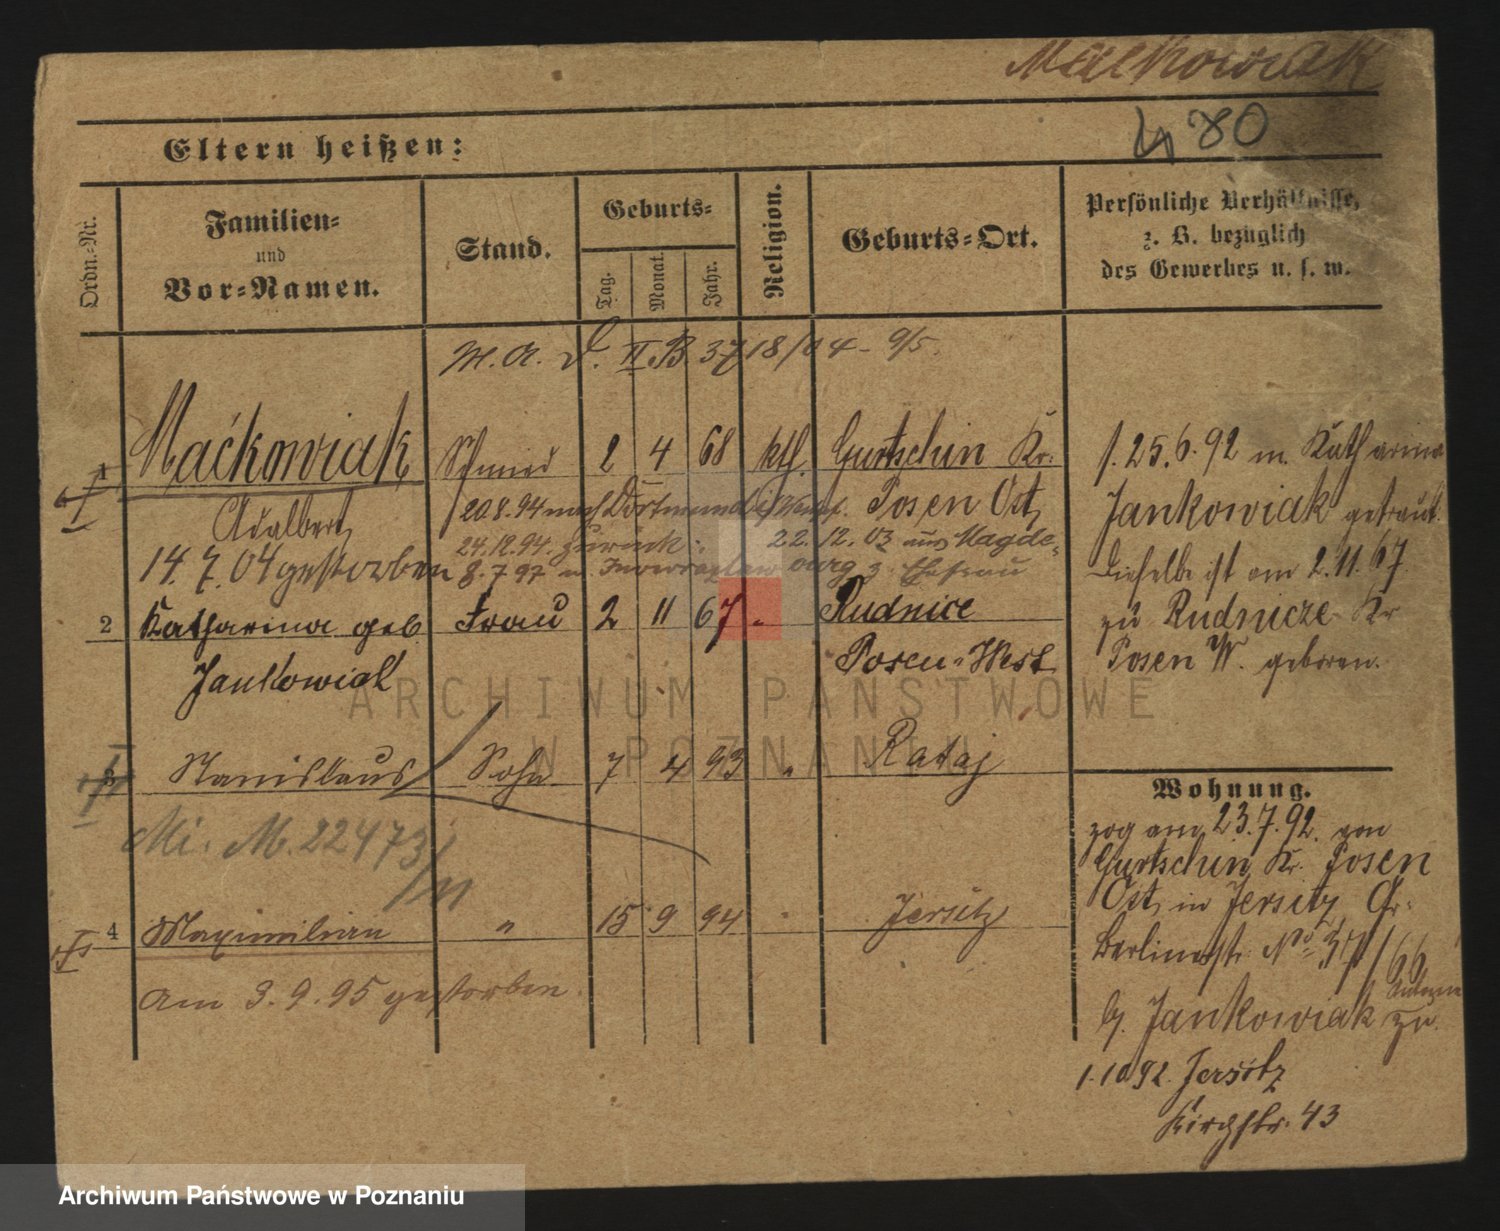 Mackowiak
480
Eltern heißen:
Ordn.-Nr.
Familien-
und
Vor-Namen.
Stand.
Geburts-
Tag.
Monat.
Jahr.
Religion.
Geburts-Ort.
Persönliche Verhältnisse,
z. B. bezüglich
des Gewerbes u. s. w.
M. A. J. II B 3718/04 - 9/5.
1 Maćkowiak Schmied 2 4 68 kth Gurtschin Kr.
Adalbert 20.8.94 nach Dortmund Posen Ost,
24.12.94 zurück. 22.12.03 aus Magde-
14.7.04 gestorben 8.7.97 n. Inowrazlaw burg z. Ehefrau
2 Katharina geb. Frau 2 11 67 " Rudnice
Jankowiak Posen-West
3 Stanislaus Sohn 7 4 93 " Rataj
Mi. M. 22473/
4 Maximilian " 15 9 94 " Jersitz
am 3.9.95 gestorben.
/.25.6.92 m. Katharina
Jankowiak getraut.
Dieselbe ist am 2.11.67.
zu Rudnicze Kr
Posen W. geboren.
Wohnung.
zog am 23.7.92. von
Gurtschin Kr. Posen
Ost, in Jersitz, Gr.
Berlinerstr. No 37/66
b. Jankowiak zu.
1.10 92. Jersitz
Kirchstr. 43
ARCHIWUM PAŃSTWOWE
W POZNANIU
Archiwum Państwowe w Poznaniu